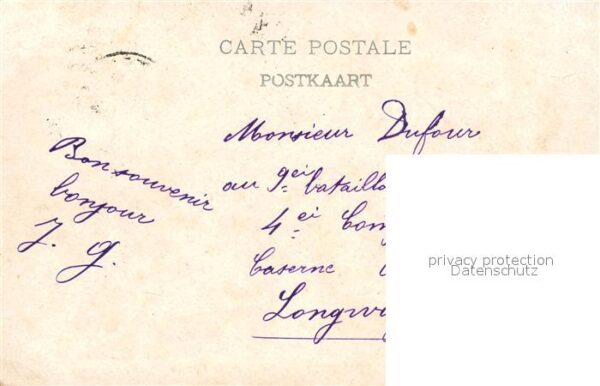 CARTE POSTALE
POSTKAART
Monsieur Dufour
au 9ei bataillo
4ei Com
Caserne
Longwy
Bon souvenir
bonjour
J. G.
privacy protection
Datenschutz